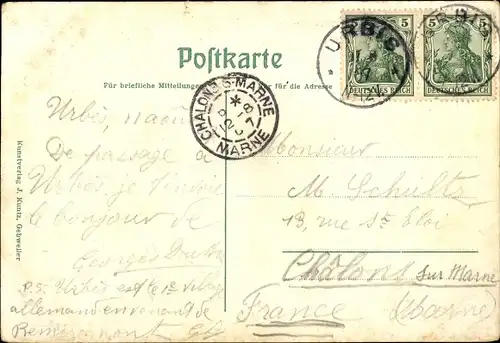 Postkarte
Für briefliche Mitteilungen für die Adresse
URBIS
URBIS
5
5
DEUTSCHES REICH
DEUTSCHES REICH
CHALONS-S-MARNE
MARNE
Kunstverlag J. Kuntz, Gebweiler
Urbès, août
De passage à
Urbès, je t'envoie
le bonjour de
Georges
P.S. Urbès est le 1er village
allemand en venant de
Remiremont
Monsieur
M. Schultz
13, rue St Eloi
Châlons sur Marne
France (Marne)